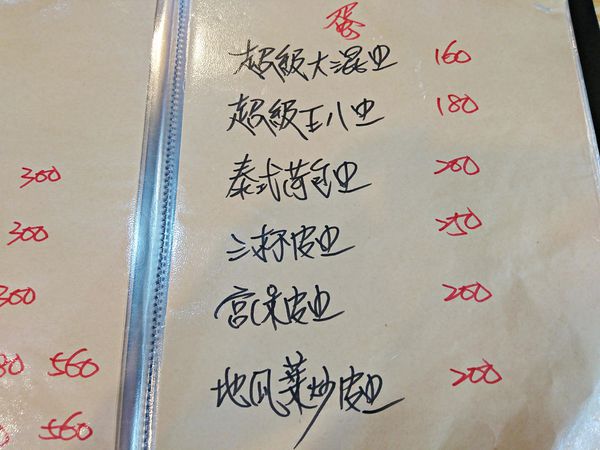 300
300
300
560
560
蛋
超級大混旦 160
超級王八旦 180
泰式荷包旦 200
三杯皮旦 250
宮保皮旦 200
地瓜葉炒皮旦 200